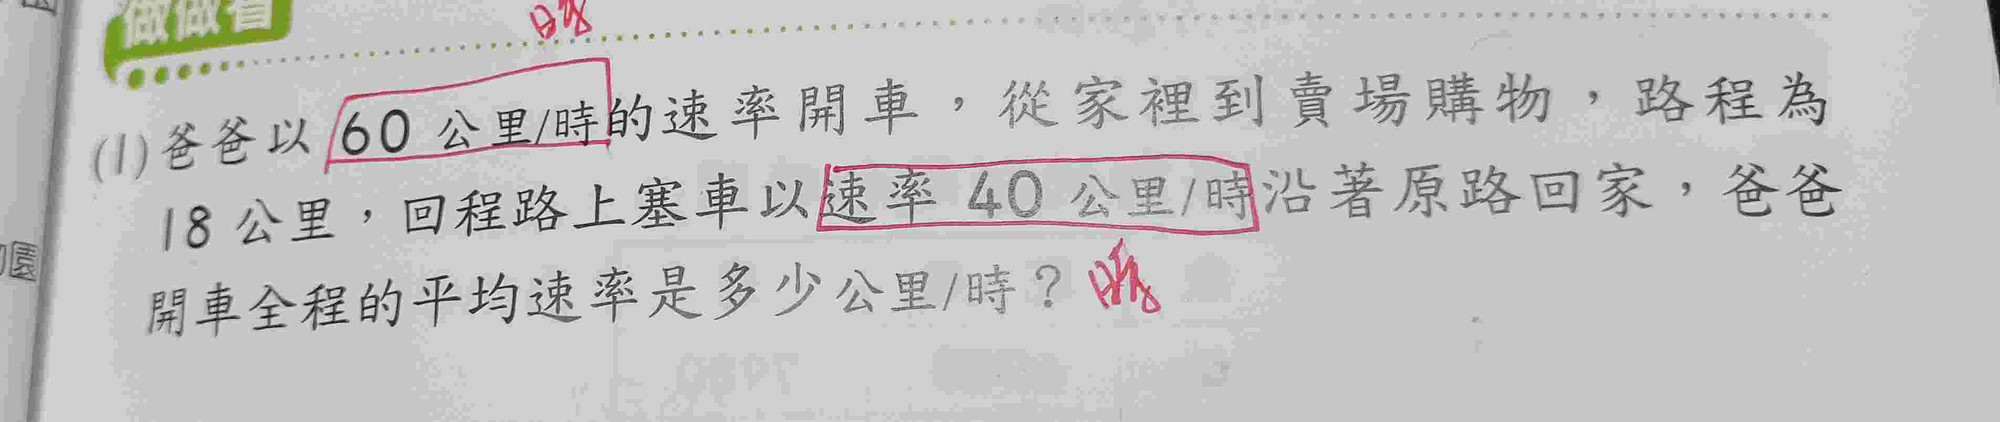 做做看
時
(1)爸爸以60公里/時的速率開車，從家裡到賣場購物，路程為
18公里，回程路上塞車以速率40公里/時沿著原路回家，爸爸
開車全程的平均速率是多少公里/時？時
園